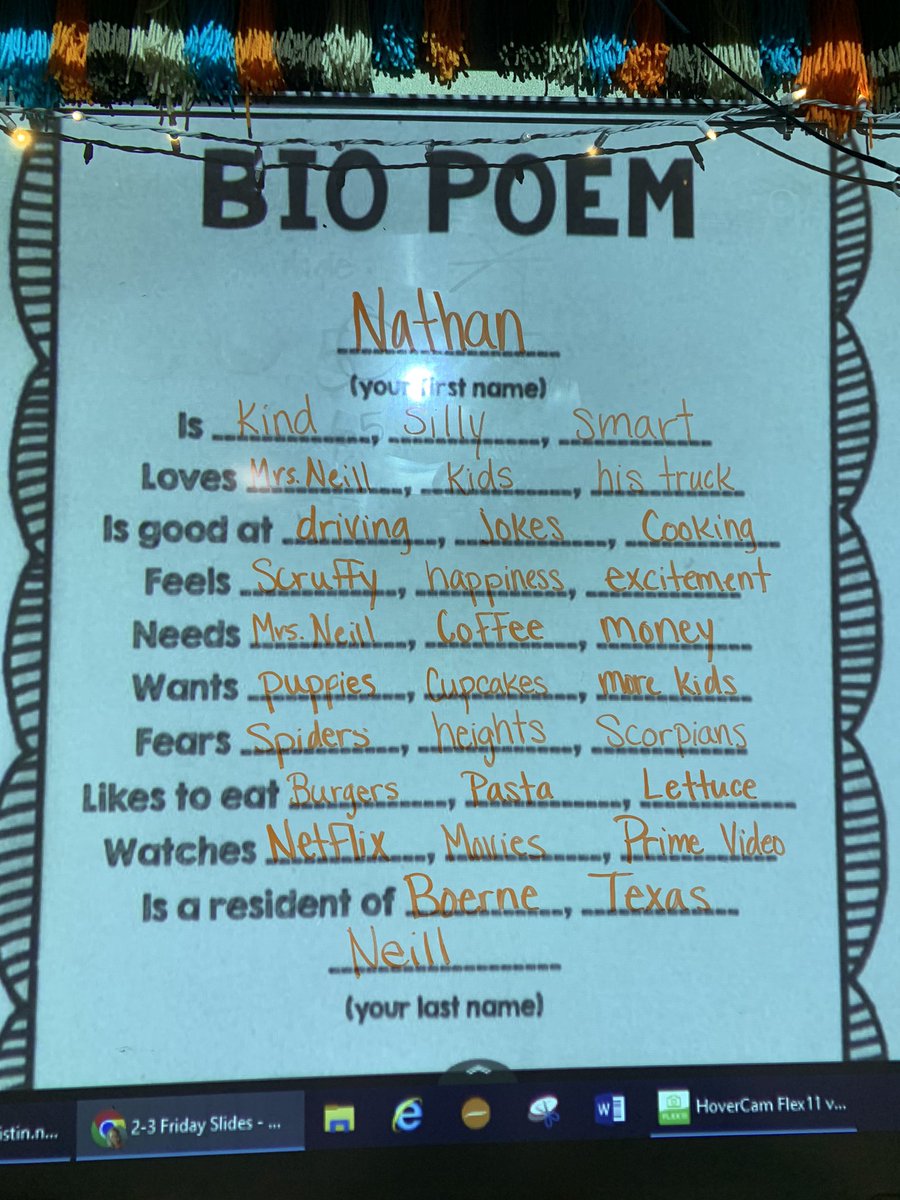 BIO POEM
Nathan
(your first name)
Is Kind, Silly, Smart
Loves Mrs. Neill, Kids, his truck
Is good at driving, Jokes, Cooking
Feels Scruffy, happiness, excitement
Needs Mrs. Neill, Coffee, money
Wants puppies, Cupcakes, more kids
Fears Spiders, heights, Scorpians
Likes to eat Burgers, Pasta, Lettuce
Watches Netflix, Movies, Prime Video
Is a resident of Boerne, Texas
Neill
(your last name)
istin.n... 2-3 Friday Slides - ... HoverCam Flex11 v...